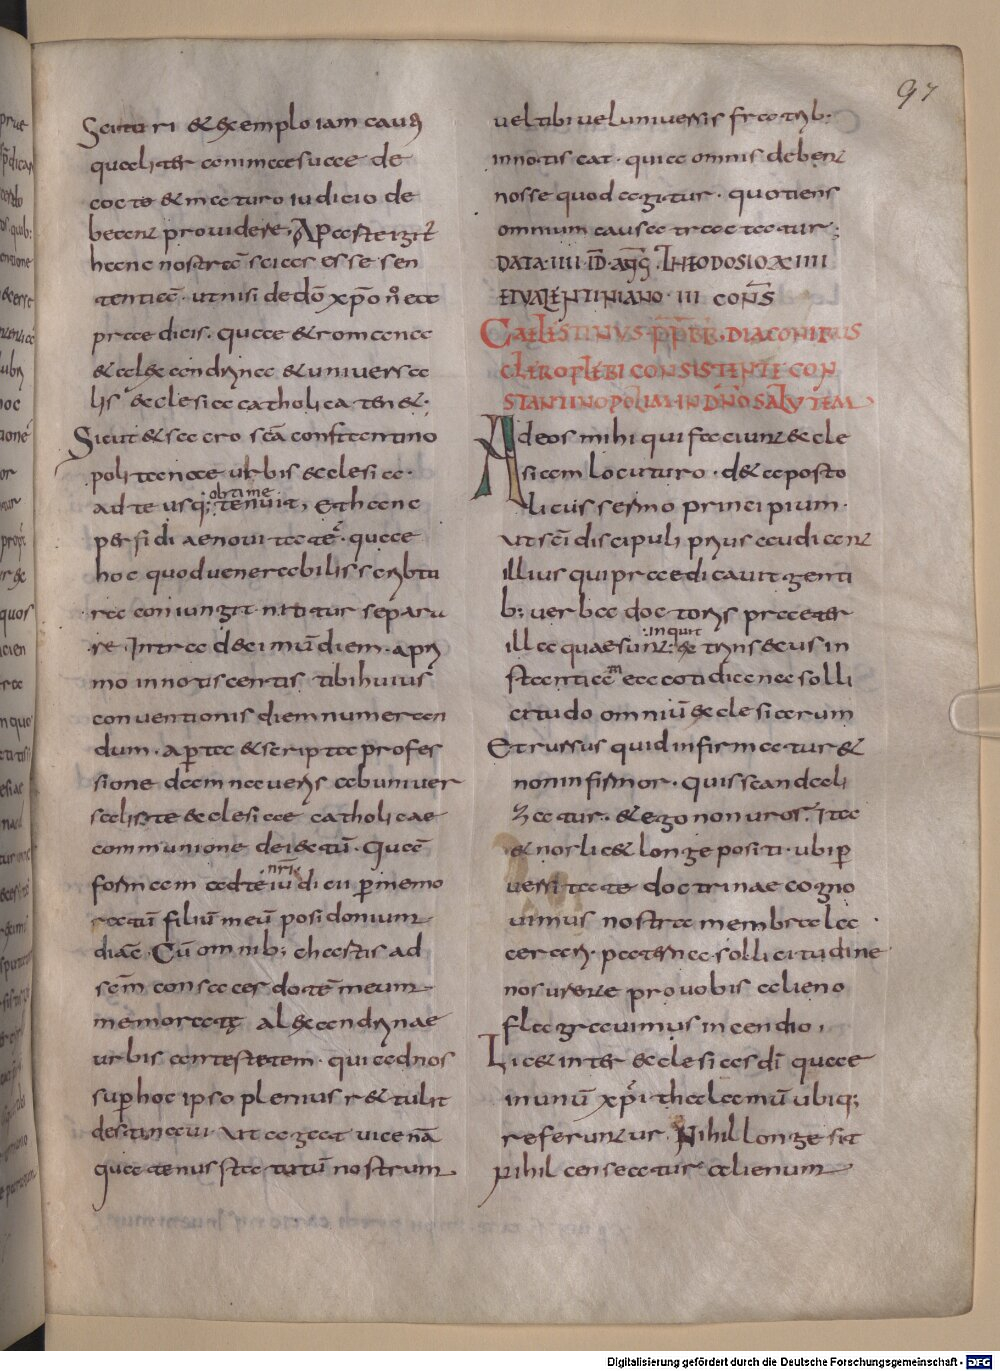 97
Scituri & exemplo iam cauen
quaeliter conimecesuae de
coctę & in ce turo iudicio de
beant prouidere, Aperte igit
hanc nostrā scias esse sen
tentiā. ut nisi de dō xpo nō ea
praedicis. quae & romana
& alexandrina & uniuersa
lis ecclesia catholica ten&.
Sicut & sacro scā constantino
politanae urbis ecclesia.
ad te usq; obtime tenuit, Et hanc
perfidiae nouitatē. quae
hoc quod uenerabilis scribtu
ra coniungit. nititur separa
re. Intra decimū diem. a pri
mo innotiscentis tibi huius
conuentionis diem numeran
dum. aperta & scripta profes
sione damnaueris ab uniuer
salis te ecclesiae catholicae
communione deiectū. Quā
formam ad te nr̄i iudicii p memo
ratū filiū meū posidonium
diac̄. Cū omnib; chartis ad
scm̄ consacerdotē meum
memoratę alexandrinae
urbis antestitem. qui ad nos
sup hoc ipso plenius r&tulit
destinaui. ut agat uice nrā
quatenus statutū nostrum
uel tibi uel uniuersis fratrib:
innotiscat. quia omnis debent
nosse quod agitur. quotiens
omnium causa tractatur;
DATA IIII ID AG̅G̅. THEODOSIO XIIII
ET VALENTINIANO III CONS
CAELESTINUS PP PBR. DIACONIBUS
CLERO PLEBI CONSISTENTI CON
STANTINOPOLIM IN DN̄O SALUTEM
Ad eos mihi qui faciunt eccle
siam locuturo. de aposto
licis sermo principium.
ut sc̄i discipuli prius audiant
illius qui praedicauit genti
b; uerba doctoris praeter
illa quae sunt: inquit extrinsecus in
stantia m̄ ea cotidiana solli
citudo omniū ecclesiarum
Et rursus quid infirmatur &
non infirmor. quis scandali
zatur. & ego non uror. Ita
& nos lic& longe positi. ubi p
uersitate doctrinae cogno
uimus nostra membra la
cerari. paterna sollicitudine
nos urente pro uobis alieno
flagrauimus incendio,
Lic& inter ecclesias dī quae
in unū xp̄i thalamū ubiq;
referuntur. Nihil longe sit
nihil censeatur alienum
Digitalisierung gefördert durch die Deutsche Forschungsgemeinschaft - DFG